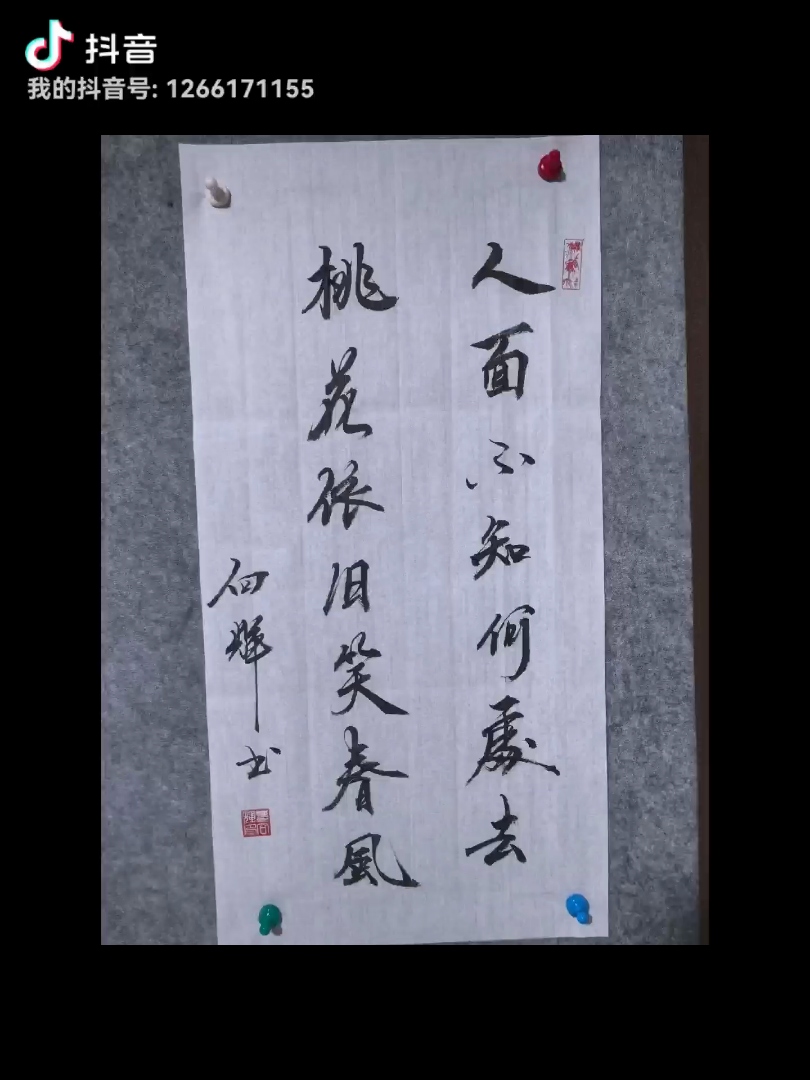 抖音
我的抖音号: 1266171155
人面不知何處去
桃花依旧笑春風
向輝书